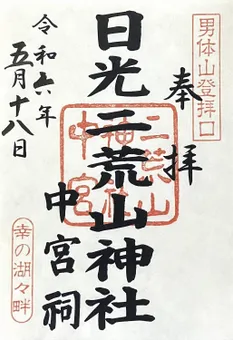 男体山登拝口
奉拝
日光二荒山神社
中宮祠
二荒山神社中宮
令和六年
五月十八日
幸の湖々畔